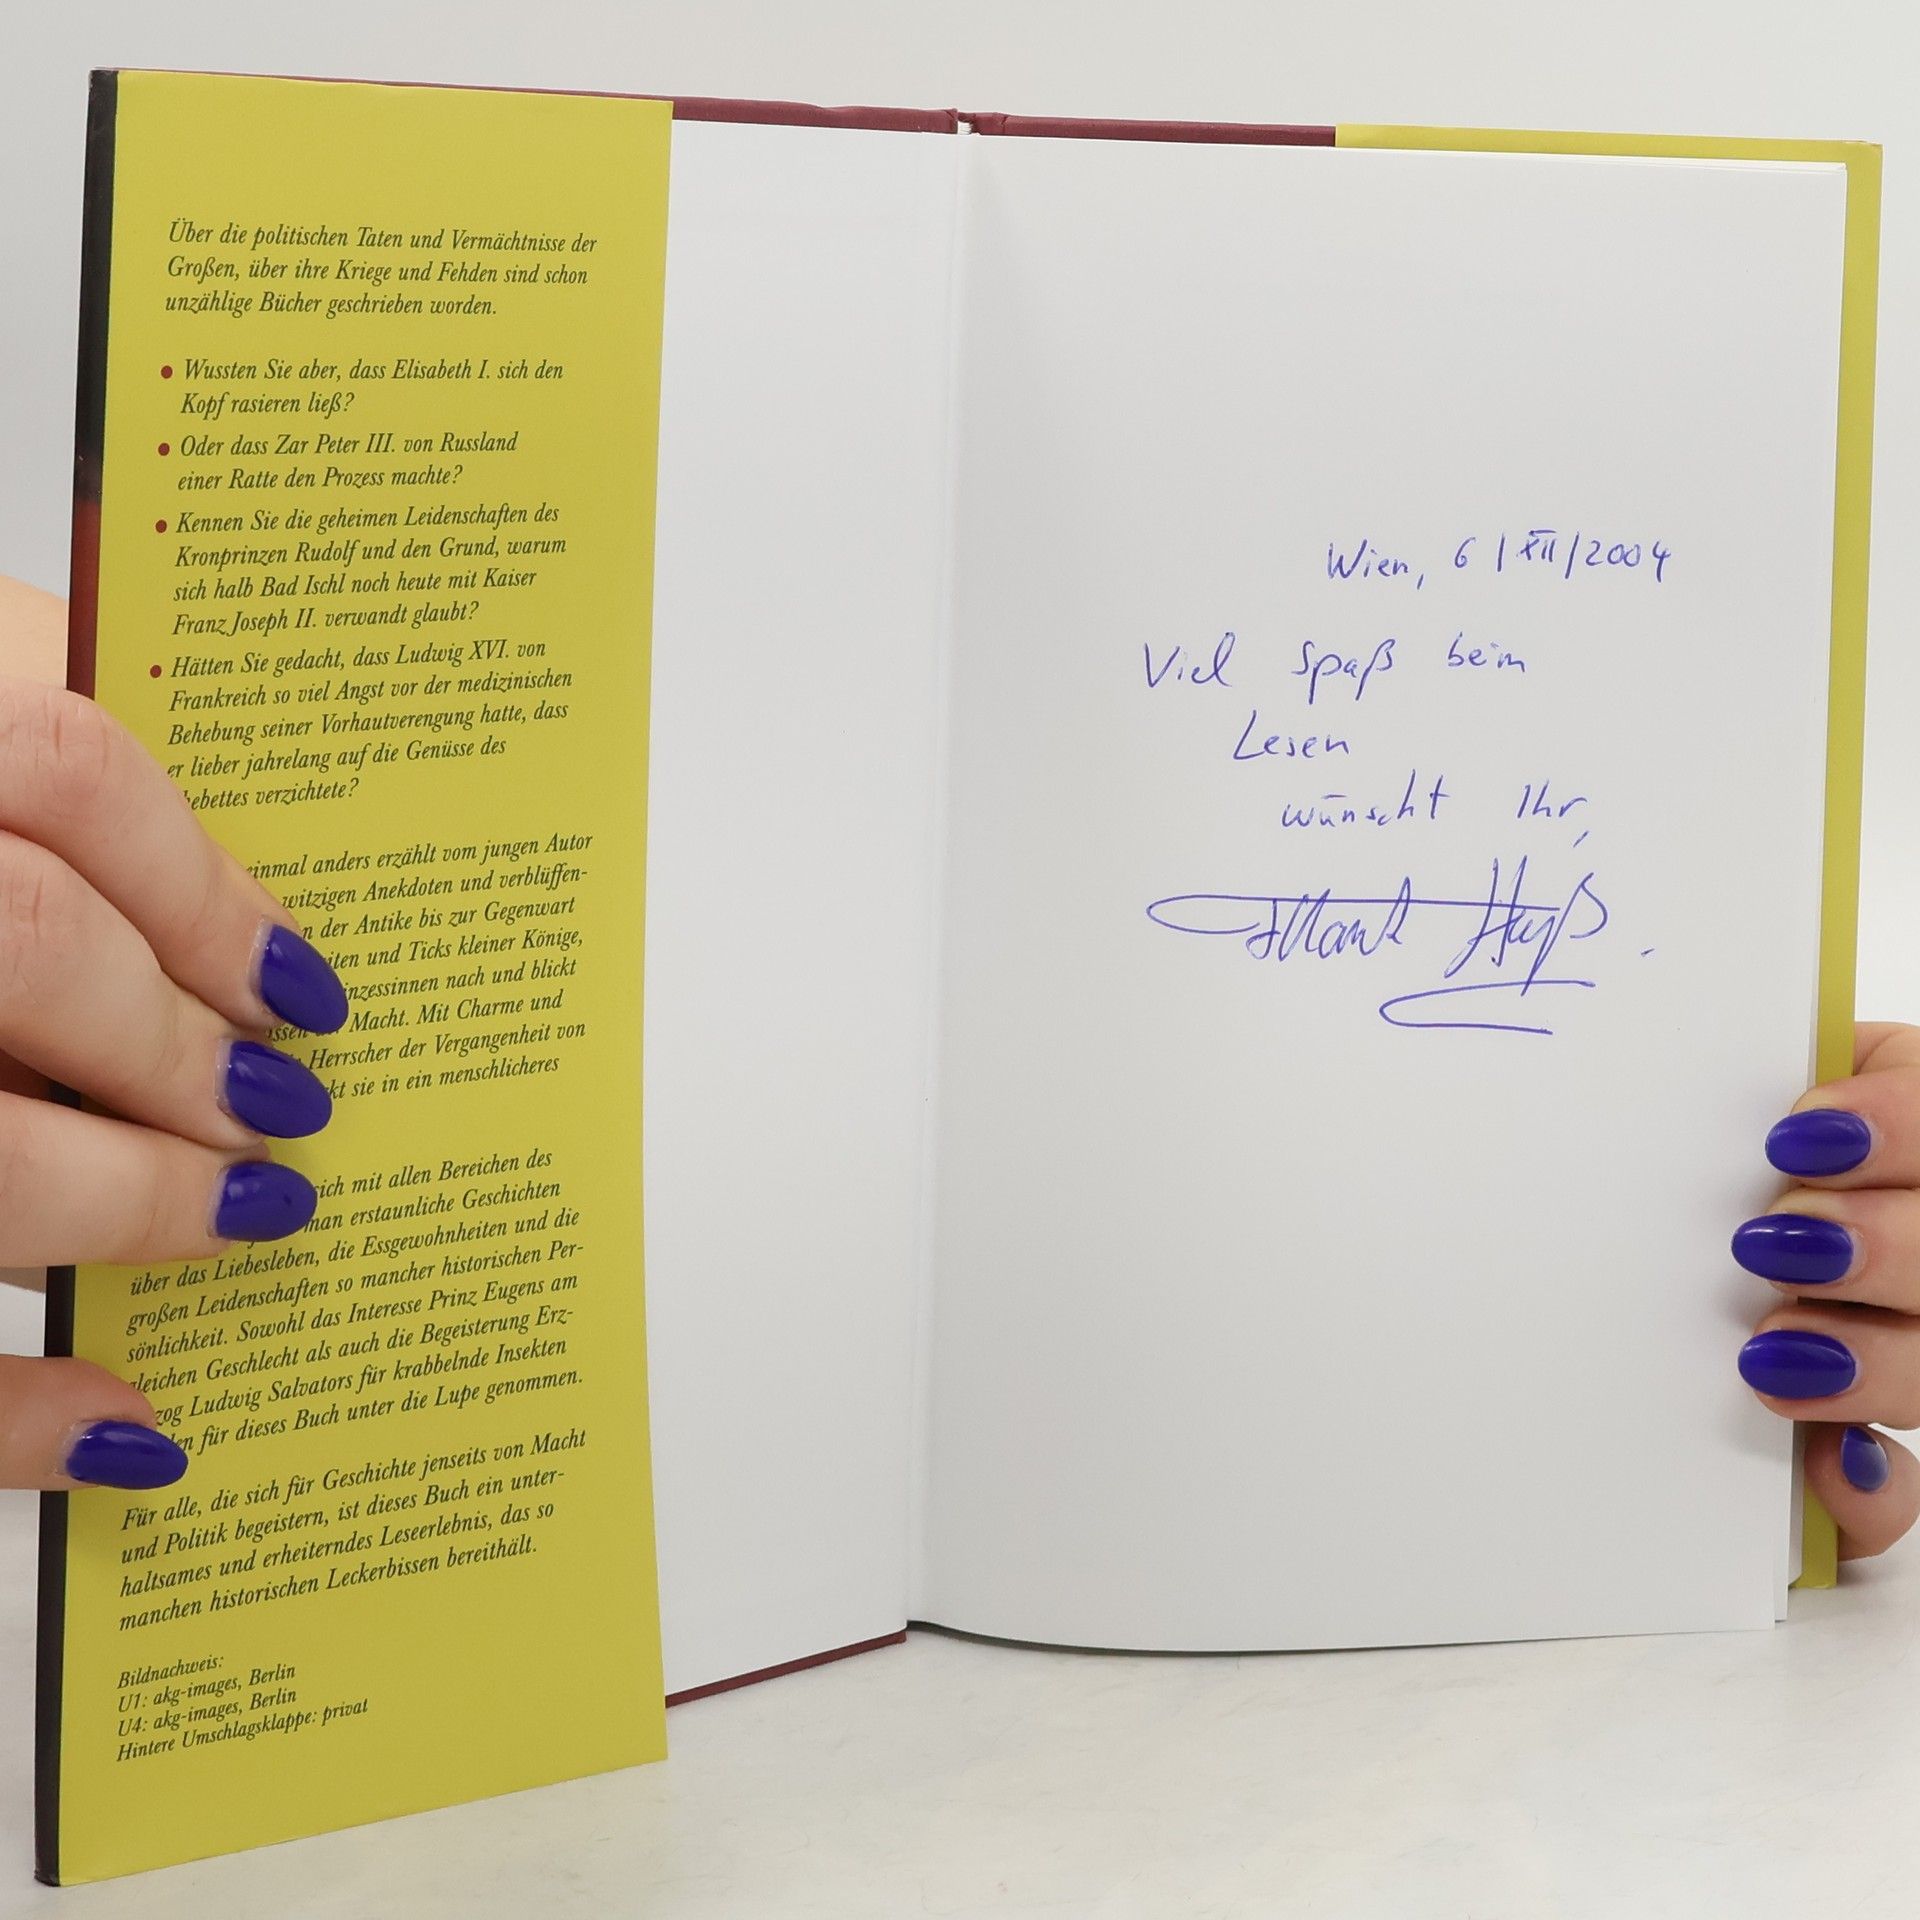 Über die politischen Taten und Vermächtnisse der
Großen, über ihre Kriege und Fehden sind schon
unzählige Bücher geschrieben worden.
• Wussten Sie aber, dass Elisabeth I. sich den
Kopf rasieren ließ?
• Oder dass Zar Peter III. von Russland
einer Ratte den Prozess machte?
• Kennen Sie die geheimen Leidenschaften des
Kronprinzen Rudolf und den Grund, warum
sich halb Bad Ischl noch heute mit Kaiser
Franz Joseph II. verwandt glaubt?
• Hätten Sie gedacht, dass Ludwig XVI. von
Frankreich so viel Angst vor der medizinischen
Behebung seiner Vorhautverengung hatte, dass
er lieber jahrelang auf die Genüsse des
hebettes verzichtete?
einmal anders erzählt vom jungen Autor
witzigen Anekdoten und verblüffen-
n der Antike bis zur Gegenwart
iten und Ticks kleiner Könige,
inzessinnen nach und blickt
Macht. Mit Charme und
Herrscher der Vergangenheit von
kt sie in ein menschlicheres
sich mit allen Bereichen des
man erstaunliche Geschichten
über das Liebesleben, die Essgewohnheiten und die
großen Leidenschaften so mancher historischen Per-
sönlichkeit. Sowohl das Interesse Prinz Eugens am
gleichen Geschlecht als auch die Begeisterung Erz-
zog Ludwig Salvators für krabbelnde Insekten
en für dieses Buch unter die Lupe genommen.
Für alle, die sich für Geschichte jenseits von Macht
und Politik begeistern, ist dieses Buch ein unter-
haltsames und erheiterndes Leseerlebnis, das so
manchen historischen Leckerbissen bereithält.
Bildnachweis:
U1: akg-images, Berlin
U4: akg-images, Berlin
Hintere Umschlagsklappe: privat
Wien, 6/XII/2004
Viel Spaß beim
Lesen
wünscht Ihr,